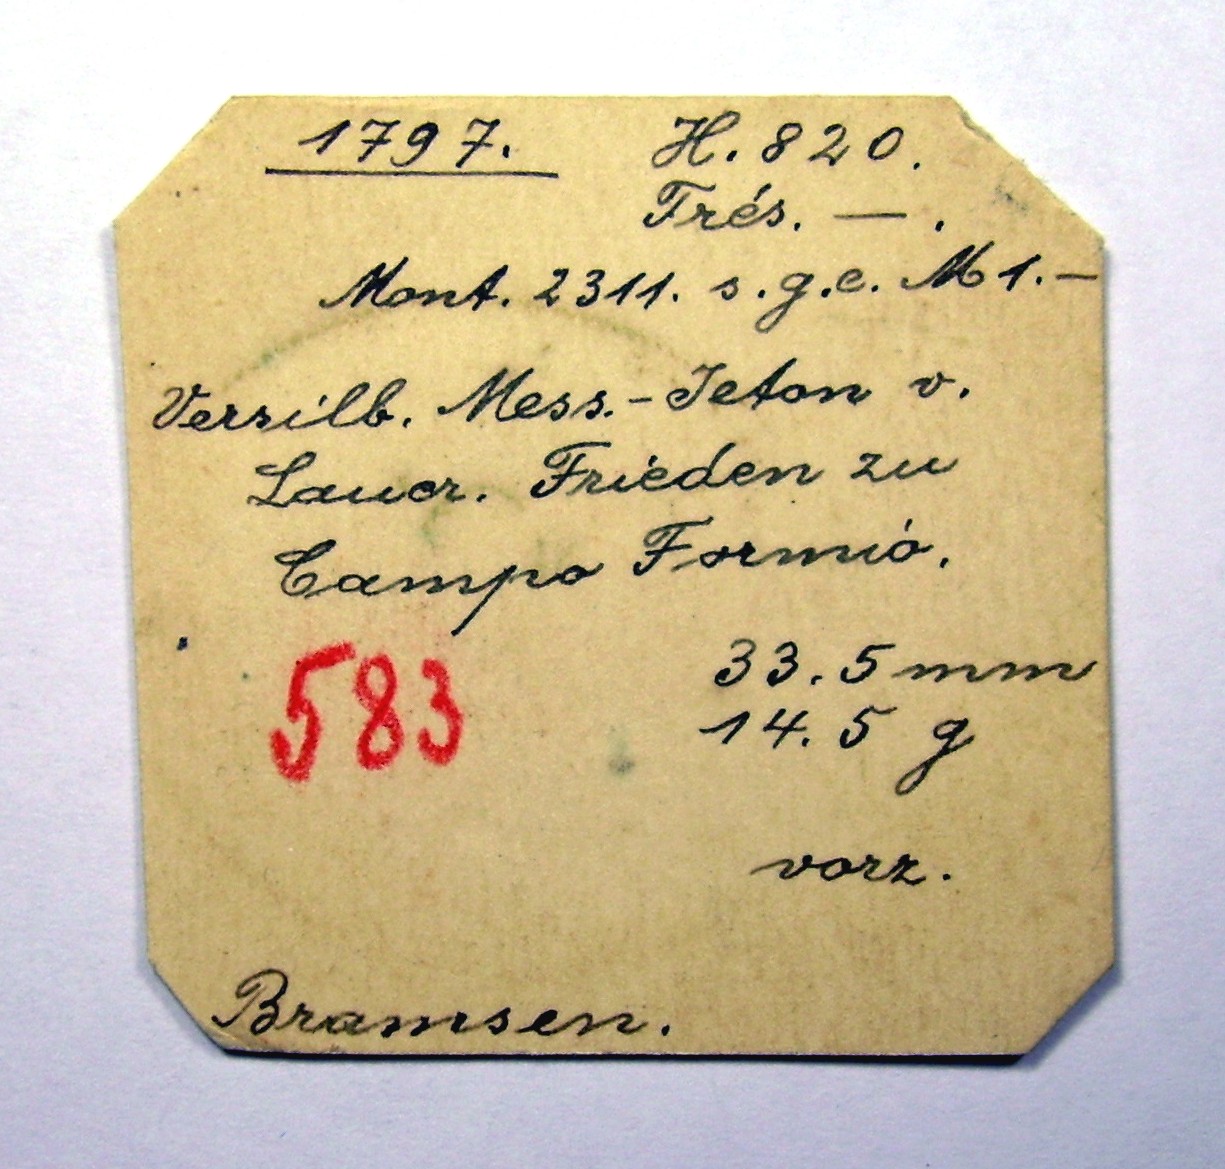 1797. H. 820.
Trés. — .
Mont. 2311. s.g.e. M 1.—
Versilb. Mess.-Jeton v.
Lauer. Frieden zu
Campo Formió.
583
33.5 mm
14.5 g
vorz.
Bramsen.